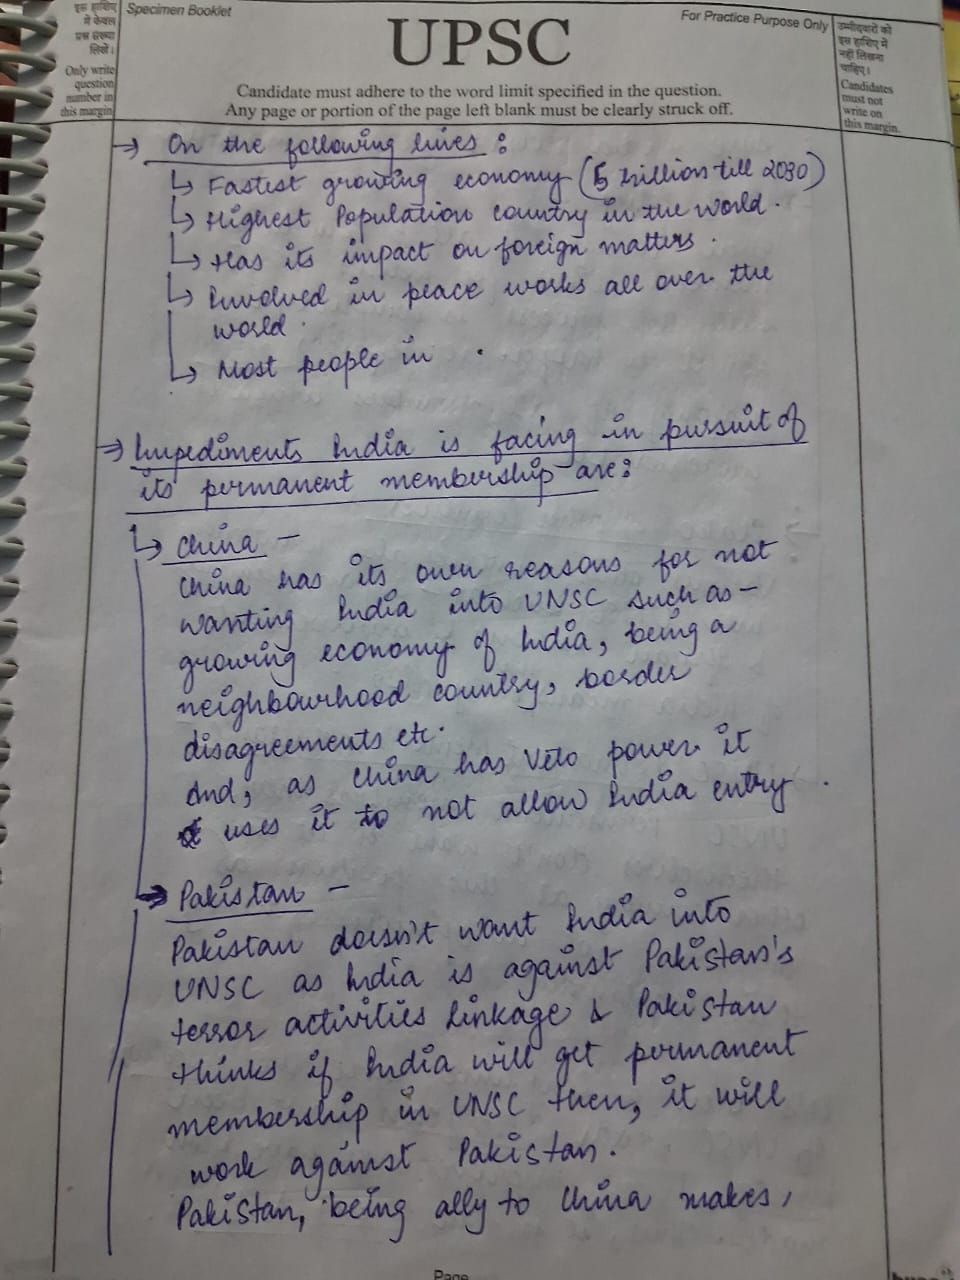 इस हाशिए
में केवल
प्रश्न संख्या
लिखें।
Only write
question
number in
this margin
Specimen Booklet
For Practice Purpose Only
UPSC
Candidate must adhere to the word limit specified in the question.
Any page or portion of the page left blank must be clearly struck off.
उम्मीदवारों को
इस हाशिए में
नहीं लिखना
चाहिए।
Candidates
must not
write on
this margin.
→ On the following lines :
↳ Fastest growing economy (5 trillion till 2030)
↳ Highest Population country in the world.
↳ Has its impact on foreign matters.
↳ Involved in peace works all over the
world.
↳ Most people in .
→ Impediments India is facing in pursuit of
its permanent membership are:
↳ China –
China has its own reasons for not
wanting India into UNSC such as –
growing economy of India, being a
neighbourhood country, border
disagreements etc.
And, as China has Veto power it
uses it to not allow India entry.
→ Pakistan –
Pakistan doesn't want India into
UNSC as India is against Pakistan's
terror activities linkage & Pakistan
thinks if India will get permanent
membership in UNSC then, it will
work against Pakistan.
Pakistan, being ally to China makes,
Page